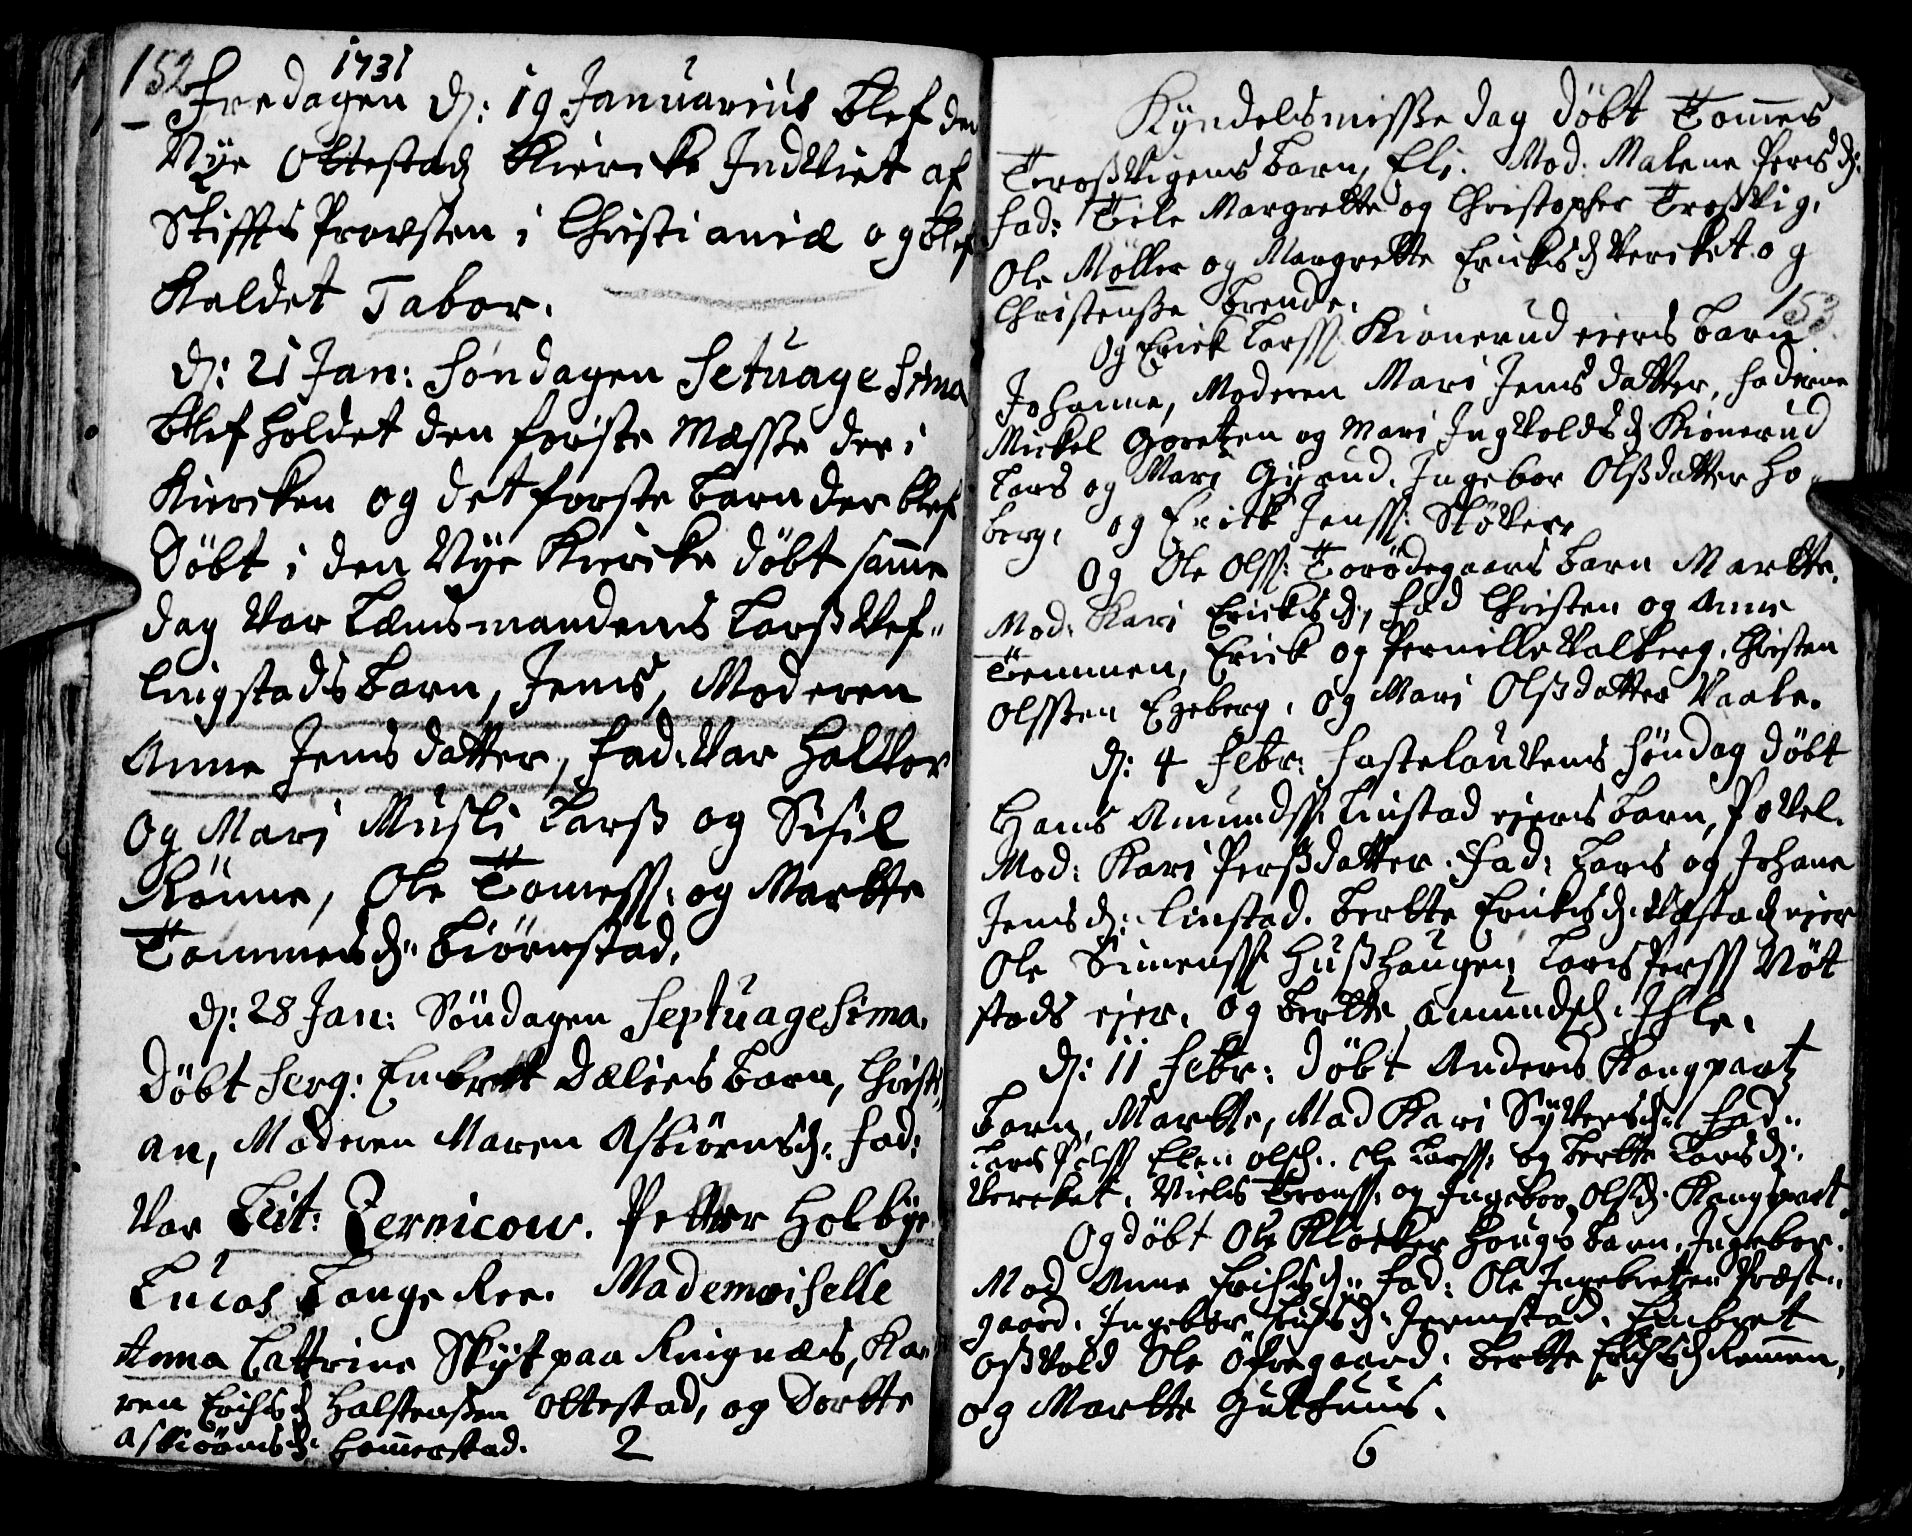 152
1731
Fredagen d: 19 Januarius blef den
Nye Ottestad Kiercke Indviet af
Stiffts Provsten i Christianiæ og blef
Kaldet Tabor.
d: 21 Jan: Søndagen Setuagesima
blef holdet den første Mæsse der i
Kiercken og det første barn der blef
døbt i den Nye Kiercke døbt samme
dag var Lænsmandens Lars
barn, Jens, Moderen
Anne Jensdatter, fad: var Halvor
og Mari Musli Lars og Sisil
Rønne, Ole Tomess: og Marthe
Tommesd: Biørnstad.
d: 28 Jan: Søndagen Septuagesima.
døbt Serg: Embrett Dæliens barn, Christi
an, Moderen Maren Asbiørnsd: fad:
var Leit: Zernicow. Petter Holbye
Lucas Lange Ree. Mademoiselle
Anna Cattrine Skyt paa Ringnæs, Ka
ren Erichsd Halstenssen Ottestad, og Dorthe
Asbiørnsd: Hommerstad.
2
Kyndelsmisse dag døbt Tommes
Trosvigens barn, Eli. Mod: Malene Persd:
fad: Margrette og Christopher Trosvig.
Ole Møller og Margrette Ericksd Vercket og
Christense Brende.
153
Og Erick Larss Kionerud eiers barn
Johanne, Moderen Mari Jensdatter, faderne
Mickel Goretzen og Mari Ingvoldsd Kionerud
Lars og Mari Gyrud. Ingebor Olsdatter Ho-
berg. og Erick Jenss: Skøver
Og Ole Olss: Torødegaars barn Marthe.
Mod: Kari Ericksd:, fad Christen og Anne
Temmen, Erick og Pernille Valberg. Christen
Olssen Egeberg. Og Mari Olsdatter Vaale.
d: 4 Febr: Fastelauvens Søndag døbt
Hans Amundss: Linstad eiers barn, Povel.
Mod: Kari Persdatter. Fad: Lars og Johane
Jensd: Linstad. Berthe Ericksd: eier
Ole Simenss Hushaugen Larss Perss Nøt
stads eier. og Berthe Amundsd: Ihle.
d: 11 Febr: døbt Anders Kongpartz
barn, Marthe, Mod Kari Syversd: Fad:
Lars Elen Olsd: Ole Larss: og Berthe Larsd:
Vercket. Niels og Ingebor Olsd: Kongspart.
Og døbt Ole Klocker Hougs barn. Ingebor.
Mod Anne Erichsd: fad: Ole Ingebretzen Præste-
gaard. Ingebor Erichsd: Jermstad. Embret
Osvold Ole Øfregaard. Berthe Erichsd Remmen,
og Marthe Guthuus.
6